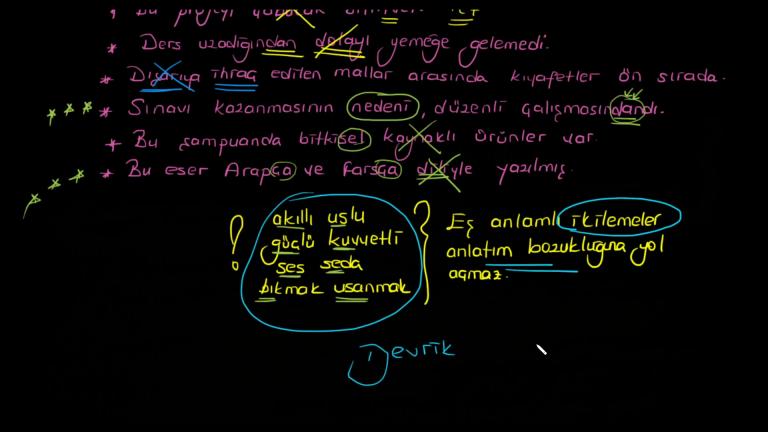 * Bu projeyi
* Ders uzadığından dolayı yemeğe gelemedi.
* Dışarıya ihraç edilen mallar arasında kıyafetler ön sırada.
* Sınavı kazanmasının nedeni, düzenli çalışmasındandı.
* Bu şampuanda bitkisel kaynaklı ürünler var.
* Bu eser Arapça ve Farsça diliyle yazılmış.
! akıllı uslu
güçlü kuvvetli
ses seda
bıkmak usanmak
Eş anlamlı ikilemeler
anlatım bozukluğuna yol
açmaz.
Devrik